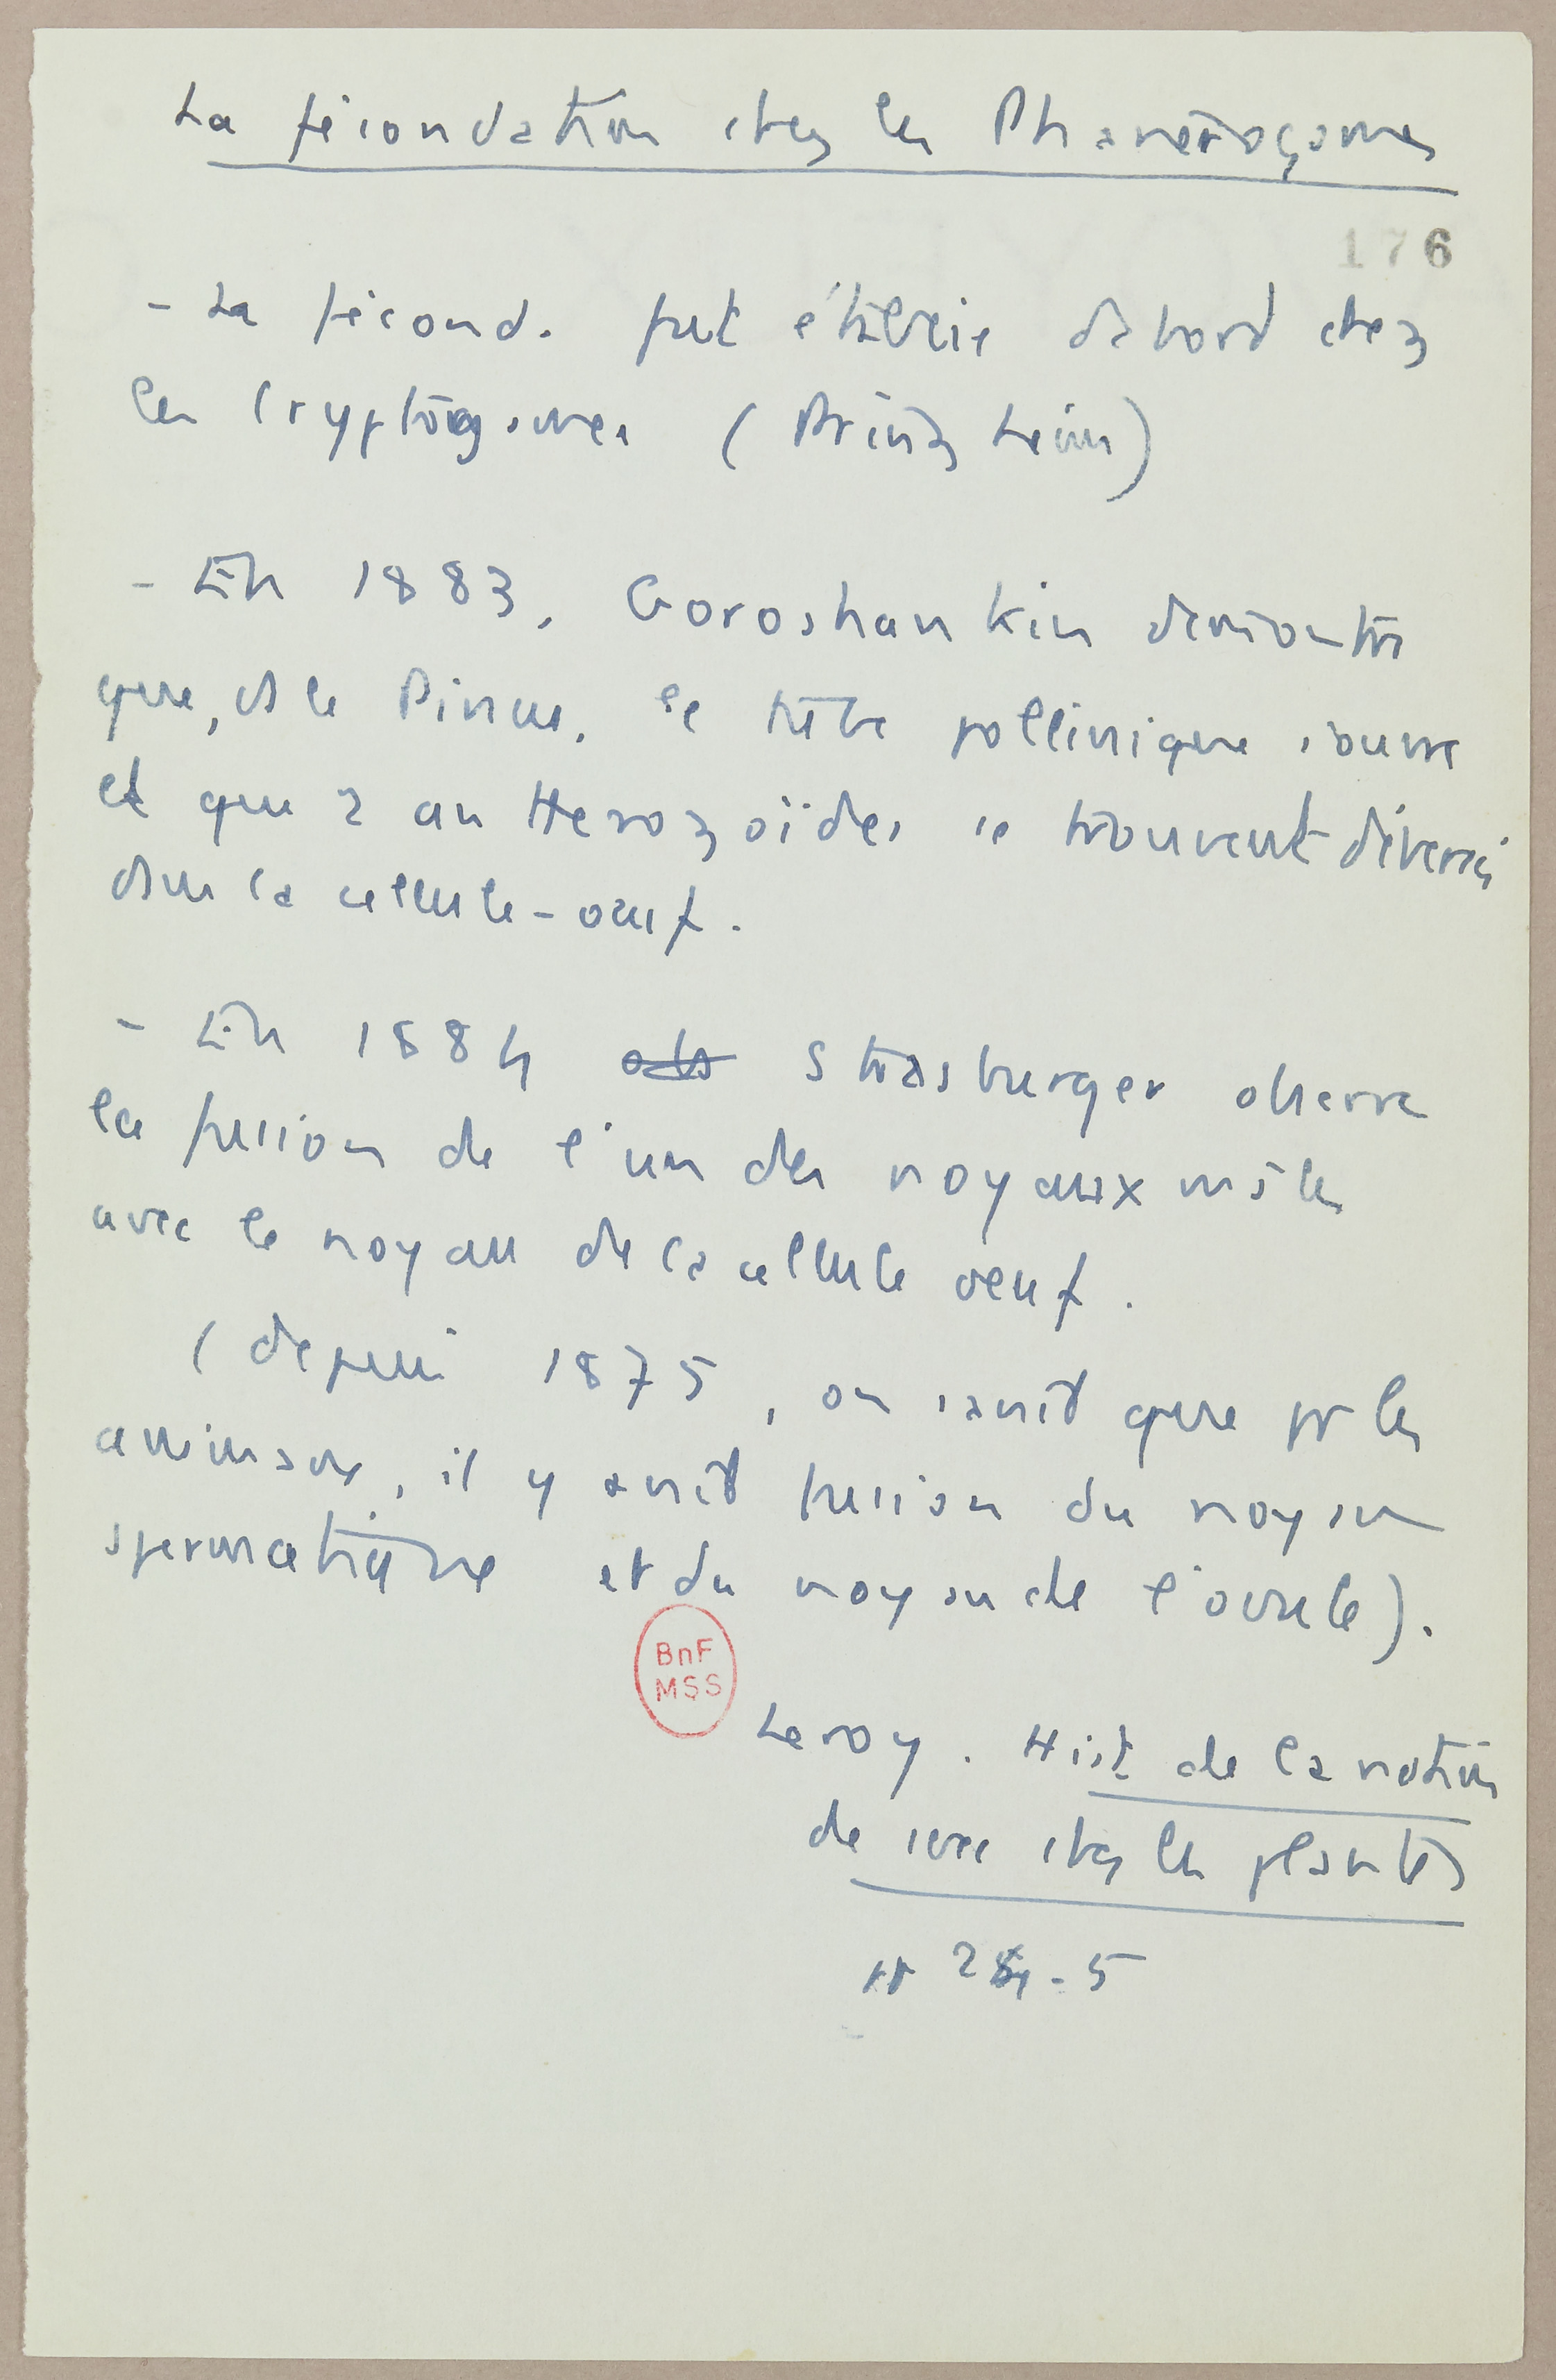 La fécondation chez les Phanérogames
176
- La fécond. fut établie d'abord chez
les Cryptogames (Prinzheim)
- En 1883, Goroshankin démontre
que, ds le Pinus, le tube pollinique s'ouvre
et que 2 anthérozoïdes se trouvent déversés
dans la cellule-oeuf.
- En 1884 Strasburger observe
la fusion de l'un des noyaux mâles
avec le noyau de la cellule oeuf.
(depuis 1875, on savait que pr les
animaux, il y avait fusion du noyau
spermatique et du noyau de l'ovule).
BnF
MSS
Leroy. Hist de la notion
de sexe chez les plantes
pp 24-5